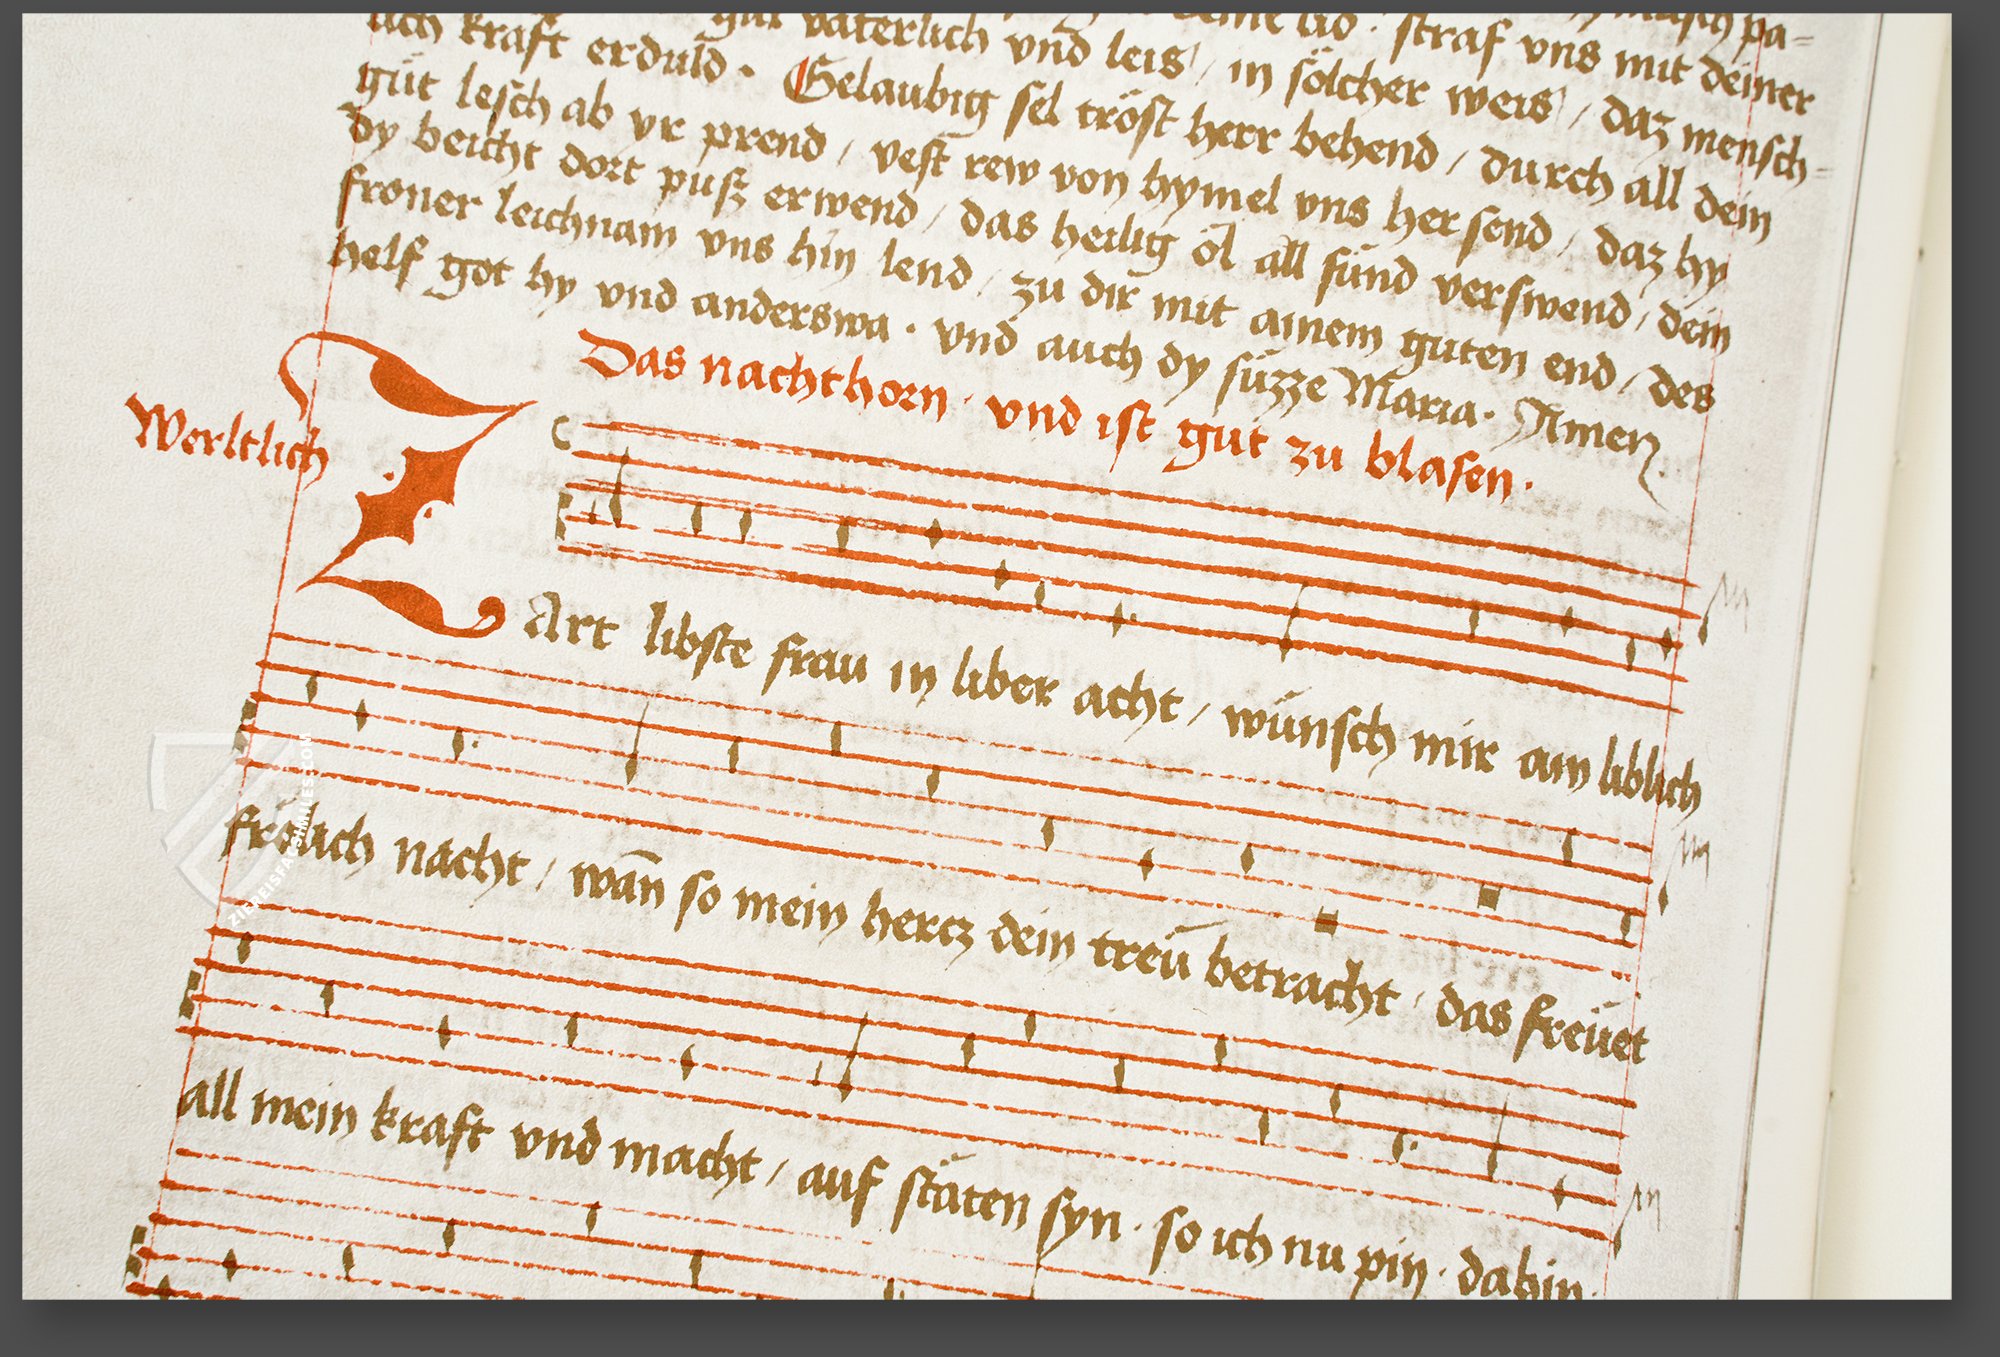 gut väterlich vnd leis / in sölcher weis / daz mensch-
lich kraft erduld · Gelaubig sel tröst herr behend / durch all dein
güt lesch ab vr prend / vest rew von hymel vns her send / daz hy
dy beicht dort pusz erwend / das heilig öl all sünd verswend / dein
froner leichnam vns hin lend / zu dir mit ainem guten end / des
helf got hy vnd anderswa · vnd auch dy süzze Maria · Amen
Das nachthorn · vnd ist gut zu blasen ·
Werltlich
ZArt libste frau in liber acht / wünsch mir ain liblich
frölich nacht / wan̄ so mein hercz dein treü betracht / das freuet
all mein kraft vnd macht / auf stäten syn · so ich nu pin · dahin ·
ZIEREISFACSIMILES.COM